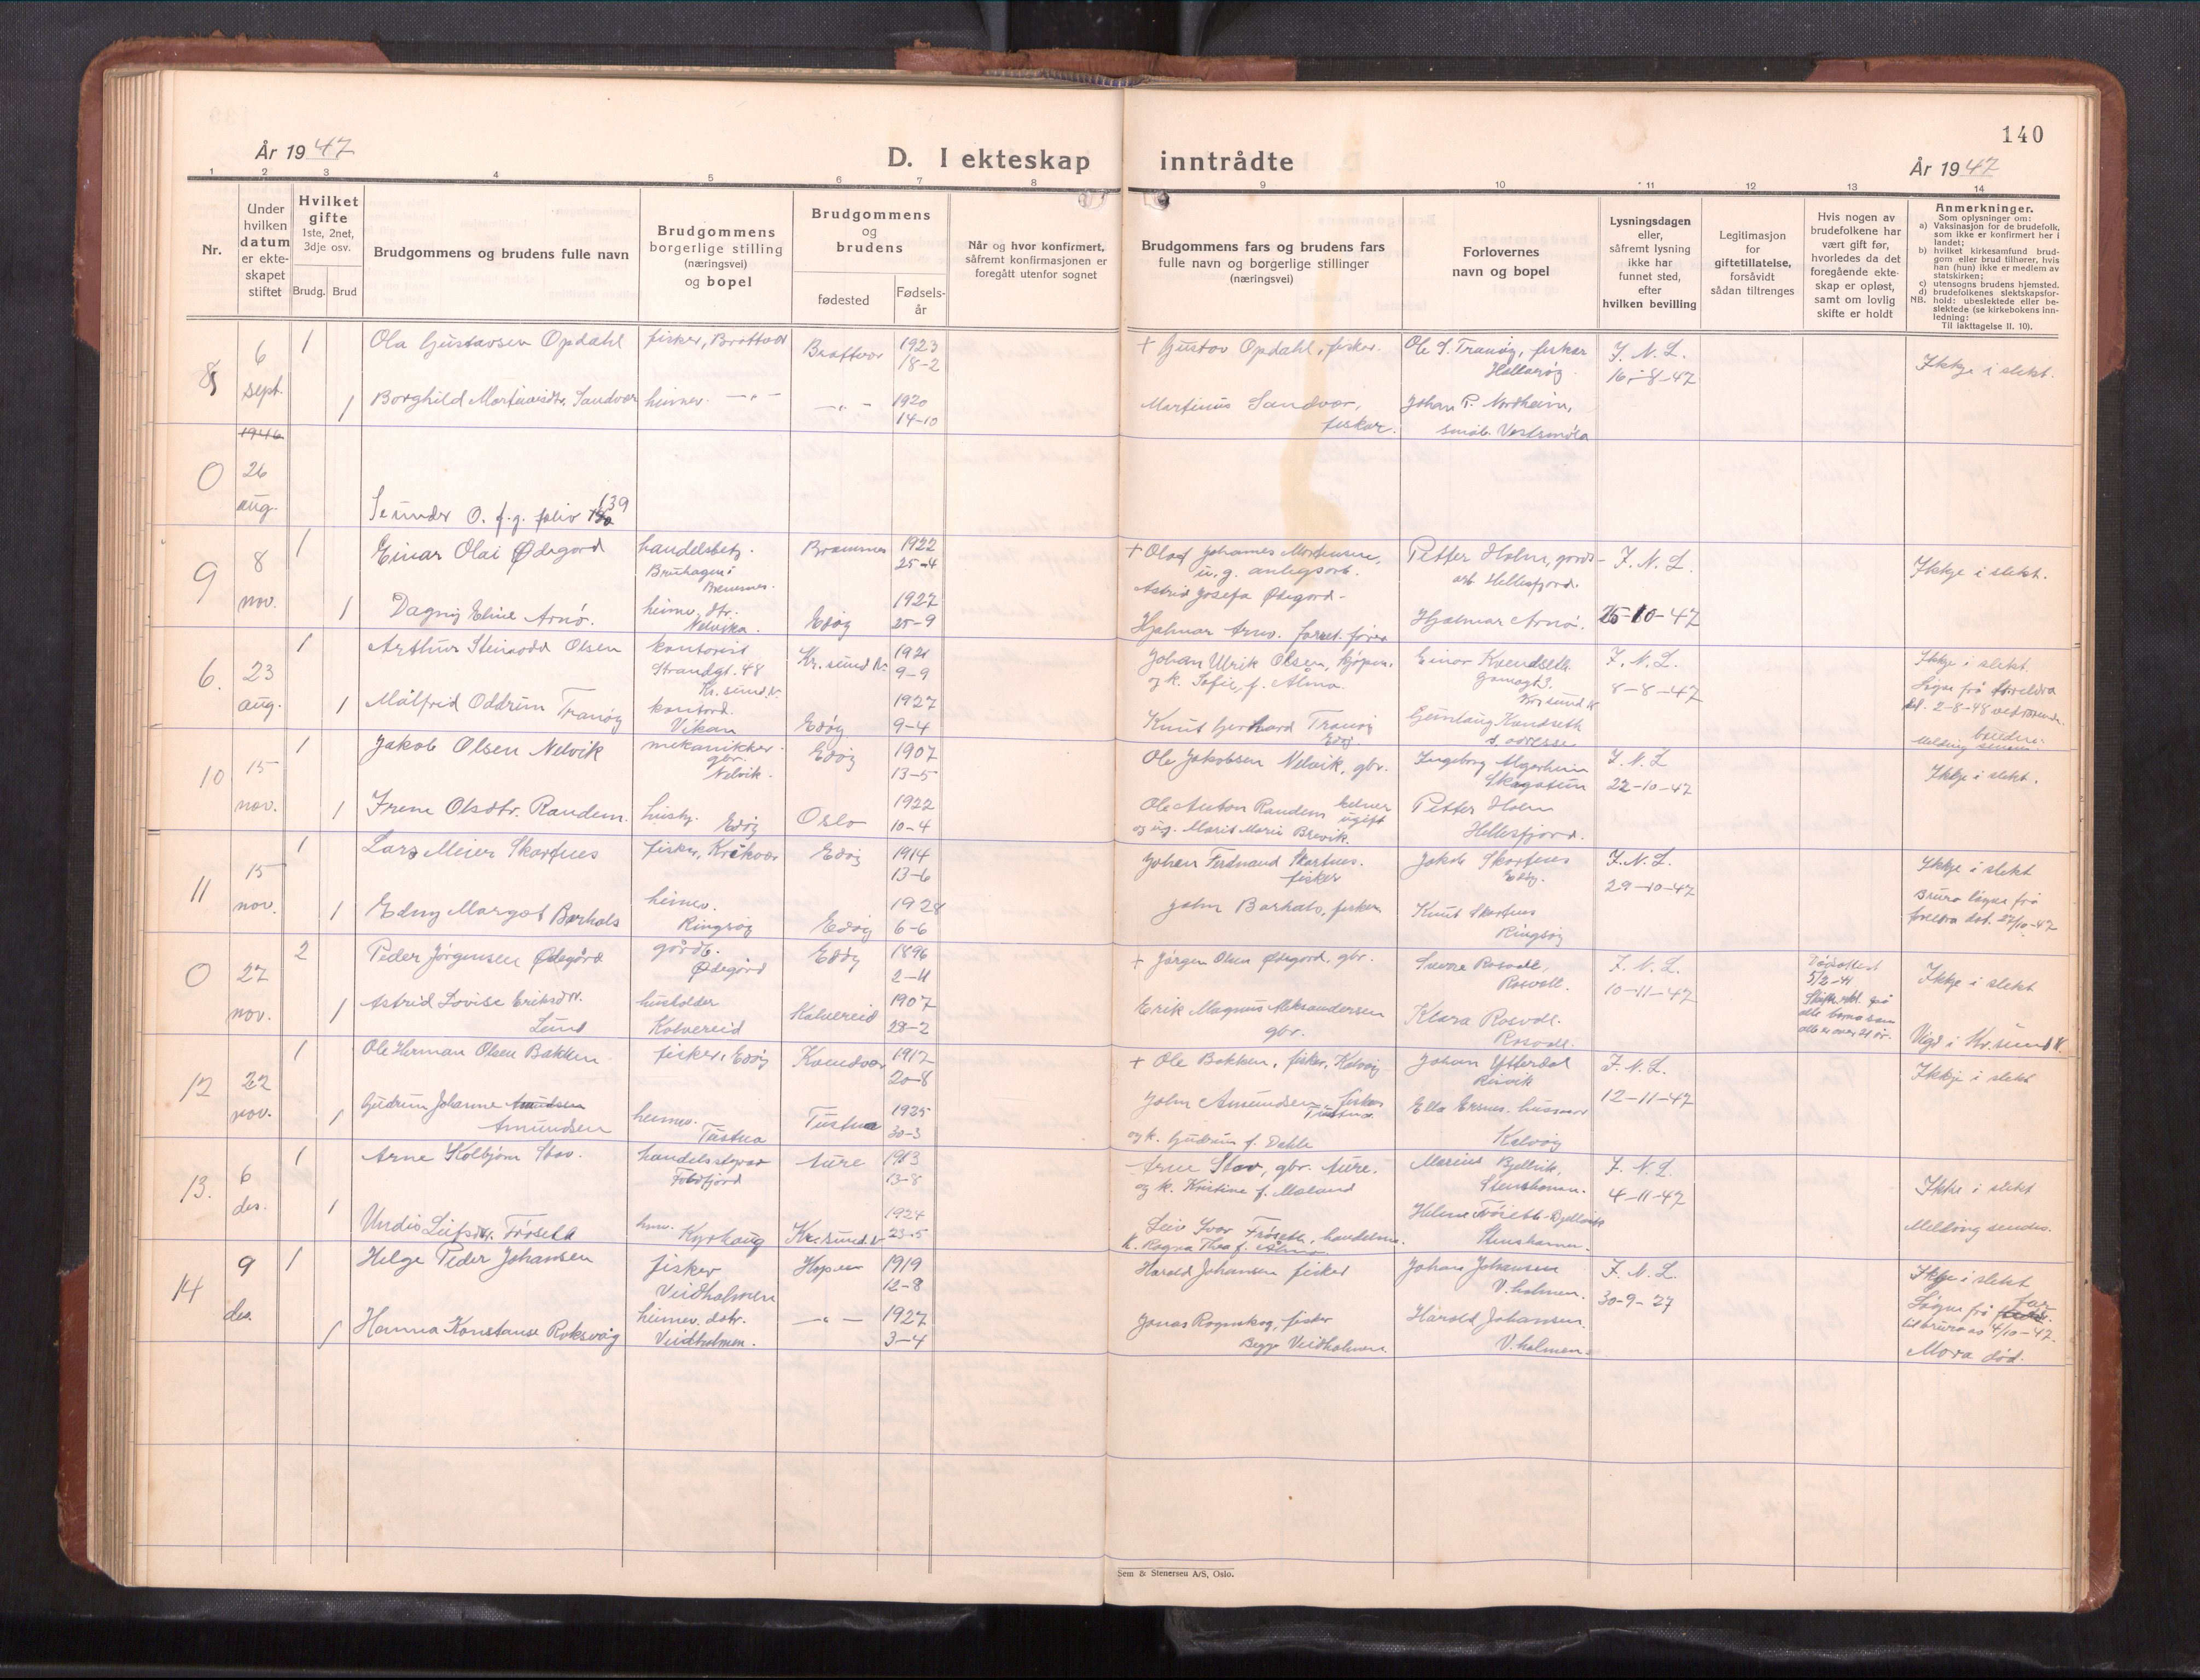 140
År 1947
D. I ekteskap inntrådte
År 1947
1 2 3 4 5 6 7 8 9 10 11 12 13 14
Nr.
Under
hvilken
datum
er ekte-
skapet
stiftet
Hvilket
gifte
1ste, 2net,
3dje osv.
Brudg. Brud
Brudgommens og brudens fulle navn
Brudgommens
borgerlige stilling
(næringsvei)
og bopel
Brudgommens
og
brudens
fødested
Fødsels-
år
Når og hvor konfirmert,
såfremt konfirmasjonen er
foregått utenfor sognet
Brudgommens fars og brudens fars
fulle navn og borgerlige stillinger
(næringsvei)
Forlovernes
navn og bopel
Lysningsdagen
eller,
såfremt lysning
ikke har
funnet sted,
efter
hvilken bevilling
Legitimasjon
for
giftetillatelse,
forsåvidt
sådan tiltrenges
Hvis nogen av
brudefolkene har
vært gift før,
hvorledes da det
foregående ekte-
skap er opløst,
samt om lovlig
skifte er holdt
Anmerkninger.
Som oplysninger om:
a) Vaksinasjon for de brudefolk,
som ikke er konfirmert her i
landet;
b) hvilket kirkesamfund brud-
gom eller brud tilhører, hvis
han (hun) ikke er medlem av
statskirken;
c) utensogns brudens hjemsted.
d) brudefolkenes slektskapsfor-
NB. hold: ubeslektede eller be-
slektede (se kirkebokens inn-
ledning:
Til iakttagelse II. 10).
8 6 sept. 1 Ola Gustavsen Opdahl fisker, Brattvær Brattvær 1923 18-2
+ Gustav Opdahl, fisker. Ole S. Tranøy, fisker Hallarøy. F. N. L. 16-8-47 Ikkje i slekt.
1 Borghild Martinusdtr. Sandvær heimev. -"- -"- 1920 14-10
Martinus Sandvær, fisker. Johan P. Nordheim, småb. Vestsmøla
1946
0 26 aug.
Se under 0. f.g. folio 139
9 8 nov. 1 Einar Olai Ødegård handelsbetj. Bruhagen i Bremsnes. Bremsnes 1922 25-4
+ Olaf Johannes Mortensen, u. g. anlegsarb. Astrid Josefa Ødegård - Petter Holm, gårdsarb. Hellesfjord. F. N. L. Ikkje i slekt.
1 Dagny Eline Arnø. heimev. dtr. Nelvika. Edøy 1927 25-9
Hjalmar Arnø. Hjalmar Arnø. 25-10-47
6. 23 aug. 1 Arthur Steinodd Olsen kontorist Strandgt. 48 Kr. sund N. Kr. sund N. 1921 9-9
Johan Ulrik Olsen, kjøpm. og k. Sofie, f. Almo. Einar F. N. L. 8-8-47 Ikkje i slekt.
1 Målfrid Oddrun Tranøy kontord. Vikan Edøy 1927 9-4
Knut Gerhard Tranøy Edøy. Gunlaug s. adresse
10 15 nov. 1 Jakob Olsen Nelvik mekanikker gbr. Nelvik. Edøy 1907 13-5
Ole Jakobsen Nelvik, gbr. Ingeborg F. N. L 22-10-47 Ikkje i slekt.
1 Irene Olsdtr. Randem. Edøy Oslo 1922 10-4
Ole Anton Randem ugift og ug. Marit Marie Brevik. Petter Holm Hellesfjord.
11 15 nov. 1 Lars Meier Skarsnes fisker, Kråkvær Edøy 1914 13-6
Johan Ferdinand Skarsnes. fisker Jakob Skarsnes Edøy. F. N. L. 29-10-47 Ikkje i slekt
1 Edny Margot Barhals heimev. Ringsøy Edøy 1928 6-6
John Barhals, fisker Knut Skarsnes Ringsøy Brura løyve frå foreldra dat. 27/10-47
0 27 nov. 2 Peder Jørgensen Ødegård gårdb. Ødegård Edøy 1896 2-11
+ Jørgen Olsen Ødegård. gbr. Sverre Rosvoll, Rosvoll. F. N. L. 10-11-47 Dødsattest 5/2-41 Ikkje i slekt
1 Astrid Lovise Eriksdtr. Lund husholder Kalvereid Kalvereid 1907 28-2
Erik Magnus Aleksandersen gbr. Klara Rosvoll. Rosvoll. alle er over 21 år. Vigd i Kr. sund N.
12 22 nov. 1 Ole Herman Olsen Bakken fisker, Edøy 1917 20-8
+ Ole Bakken, fisker, Kalvøy Johan Ytterdal F. N. L. 12-11-47 Ikkje i slekt
1 Gudrun Johanne Amundsen Amundsen heimev. Tustna Tustna 1925 30-3
John Amundsen, fisker Tustna. og k. Gudrun f. Dahle Ella Kalvøy
13. 6 des. 1 Arne Kolbjørn Stav. Aure 1913 13-8
Arne Stav, gbr. Aure. og k. Kristine f. Marius Bjellvik, F. N. L. 4-11-47 Ikkje i slekt
1 Undis Leifsdtr. Frøseth heimev. Kyrhaug Kr. sund N 1924 23-5
Leiv Ivar Frøseth, k. Ragna Thea f. Almo. Melding sendes.
14 9 des. 1 Helge Peder Johansen fisker Veidholmen Hopen 1919 12-8
Harald Johansen fisker Johan Johansen V. holmen. F. N. L. 30-9-27 Ikkje i slekt
1 Hanna Konstanse Roksvåg heimev. dotr. Veidholmen. -"- 1927 3-4
Jonas fisker Begge Veidholmen Harald Johansen. V. holmen. Løyve frå far til brura av 4/10-47. Mora død.
Sem & Stenersen A/S, Oslo.